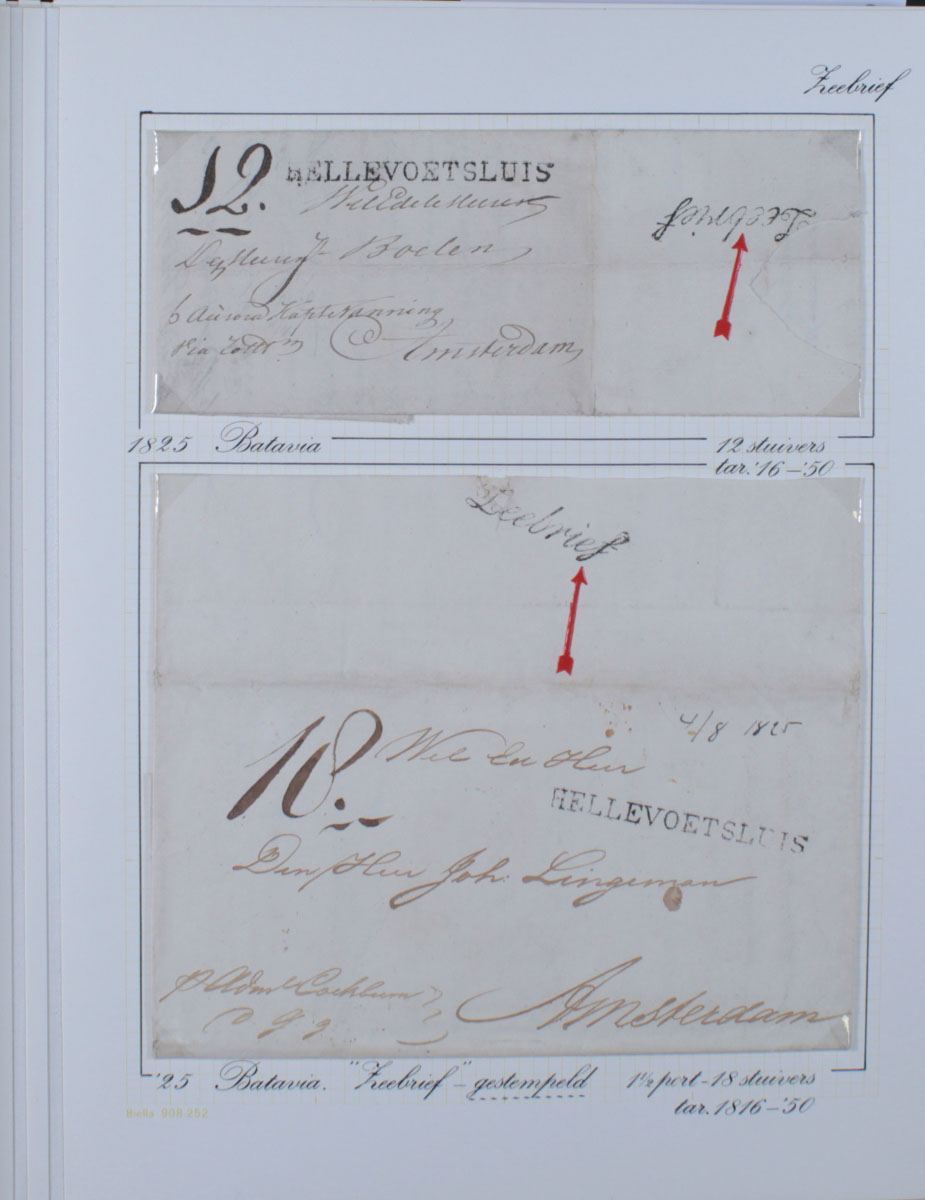 Zeebrief
12.
HELLEVOETSLUIS
WelEdele Heeren
Boelen
Zeebrief
p Aurora Kapt
via
Amsterdam
1825 Batavia
12 stuivers
tar. '16-'50
Zeebrief
4/8 1825
18.
Wel Ed Heer
HELLEVOETSLUIS
Den Heer Joh: Lingeman
p Adml Cockburn
Amsterdam
'25 Batavia. "Zeebrief" - gestempeld
1½ port - 18 stuivers
tar. 1816-'50
Biella 908 252